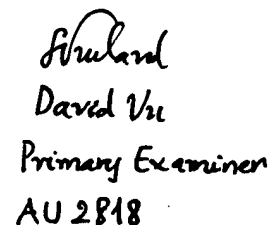 David Vu
Primary Examiner
AU 2818